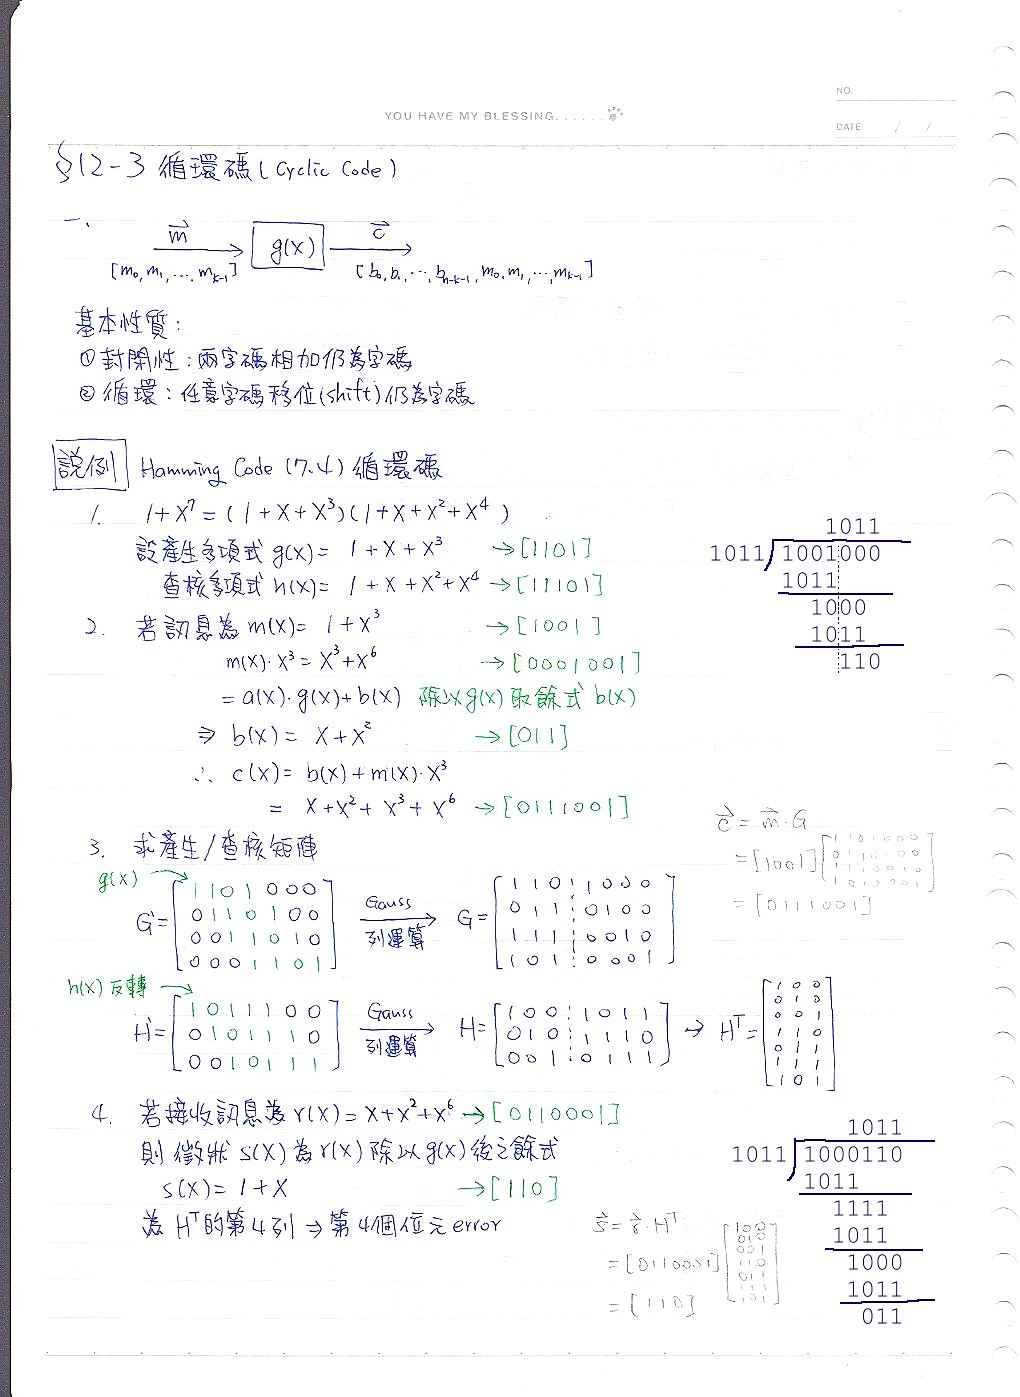 NO.
YOU HAVE MY BLESSING......
DATE / /
§12-3 循環碼(Cyclic Code)
一、
m⃗ g(X) c⃗
[m₀,m₁,⋯,mₖ₋₁] [b₀,b₁,⋯,bₙ₋ₖ₋₁,m₀,m₁,⋯,mₖ₋₁]
基本性質:
①封閉性:兩字碼相加仍為字碼
②循環:任意字碼移位(shift)仍為字碼
說例 Hamming Code (7.4) 循環碼
1. 1+X⁷=(1+X+X³)(1+X+X²+X⁴)
設產生多項式 g(X)= 1+X+X³ →[1101]
查核多項式 h(X)= 1+X+X²+X⁴ →[11101]
1011
1011 1001000
1011
1000
1011
110
2. 若訊息為 m(X)= 1+X³ →[1001]
m(X)·X³= X³+X⁶ →[0001001]
=a(X)·g(X)+b(X) 除以g(X)取餘式 b(X)
⇒ b(X)= X+X² →[011]
∴ c(X)= b(X)+m(X)·X³
= X+X²+X³+X⁶ →[0111001]
c⃗ = m⃗·G
=[1001] [1101000
0110100
1110010
1010001]
=[0111001]
3. 求產生/查核矩陣
g(X) →
G'= [1101000
0110100
0011010
0001101]
Gauss
列運算
G= [110 1000
011 0100
111 0010
101 0001]
h(X)反轉 →
H'= [1011100
0101110
0010111]
Gauss
列運算
H= [100 1011
010 1110
001 0111]
→ Hᵀ= [100
010
001
110
011
111
101]
4. 若接收訊息為 r(X)= X+X²+X⁶ →[0110001]
則徵狀 s(X)為r(X)除以g(X)後之餘式
s(X)= 1+X →[110]
為 Hᵀ的第4列 ⇒ 第4個位元error
1011
1011 1000110
1011
1111
1011
1000
1011
011
s⃗ = r⃗·Hᵀ
=[0110001] [100
010
001
110
011
111
101]
=[110]